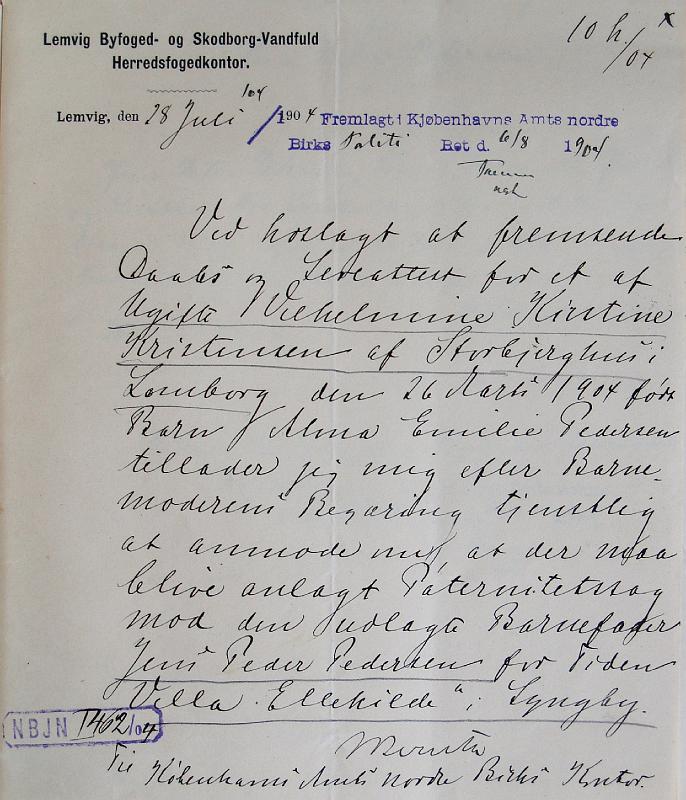 10 h. x
/04
Lemvig Byfoged- og Skodborg-Vandfuld
Herredsfogedkontor.
Lemvig, den 28 Juli 1904
Fremlagt i Kjøbenhavns Amts nordre
Birks Politi Ret d. 6/8 1904
Ved hoslagt at fremsende
Daabs og Leveattest for et af
Ugifte Vilhelmine Kirstine
Kristensen af Storbjerghus i
Lomborg den 26 Marts 1904 født
Barn Alma Emilie Pedersen
tillader jeg mig efter Barne-
moderens Begæring tjenstlig
at anmode om, at der maa
blive anlagt Paternitetssag
mod den udlagte Barnefader
Jens Peder Pedersen for Tiden
Villa "Ellekilde" i Lyngby.
NBJN 1462/04
Til Københavns Amts Nordre Birks Kontor.